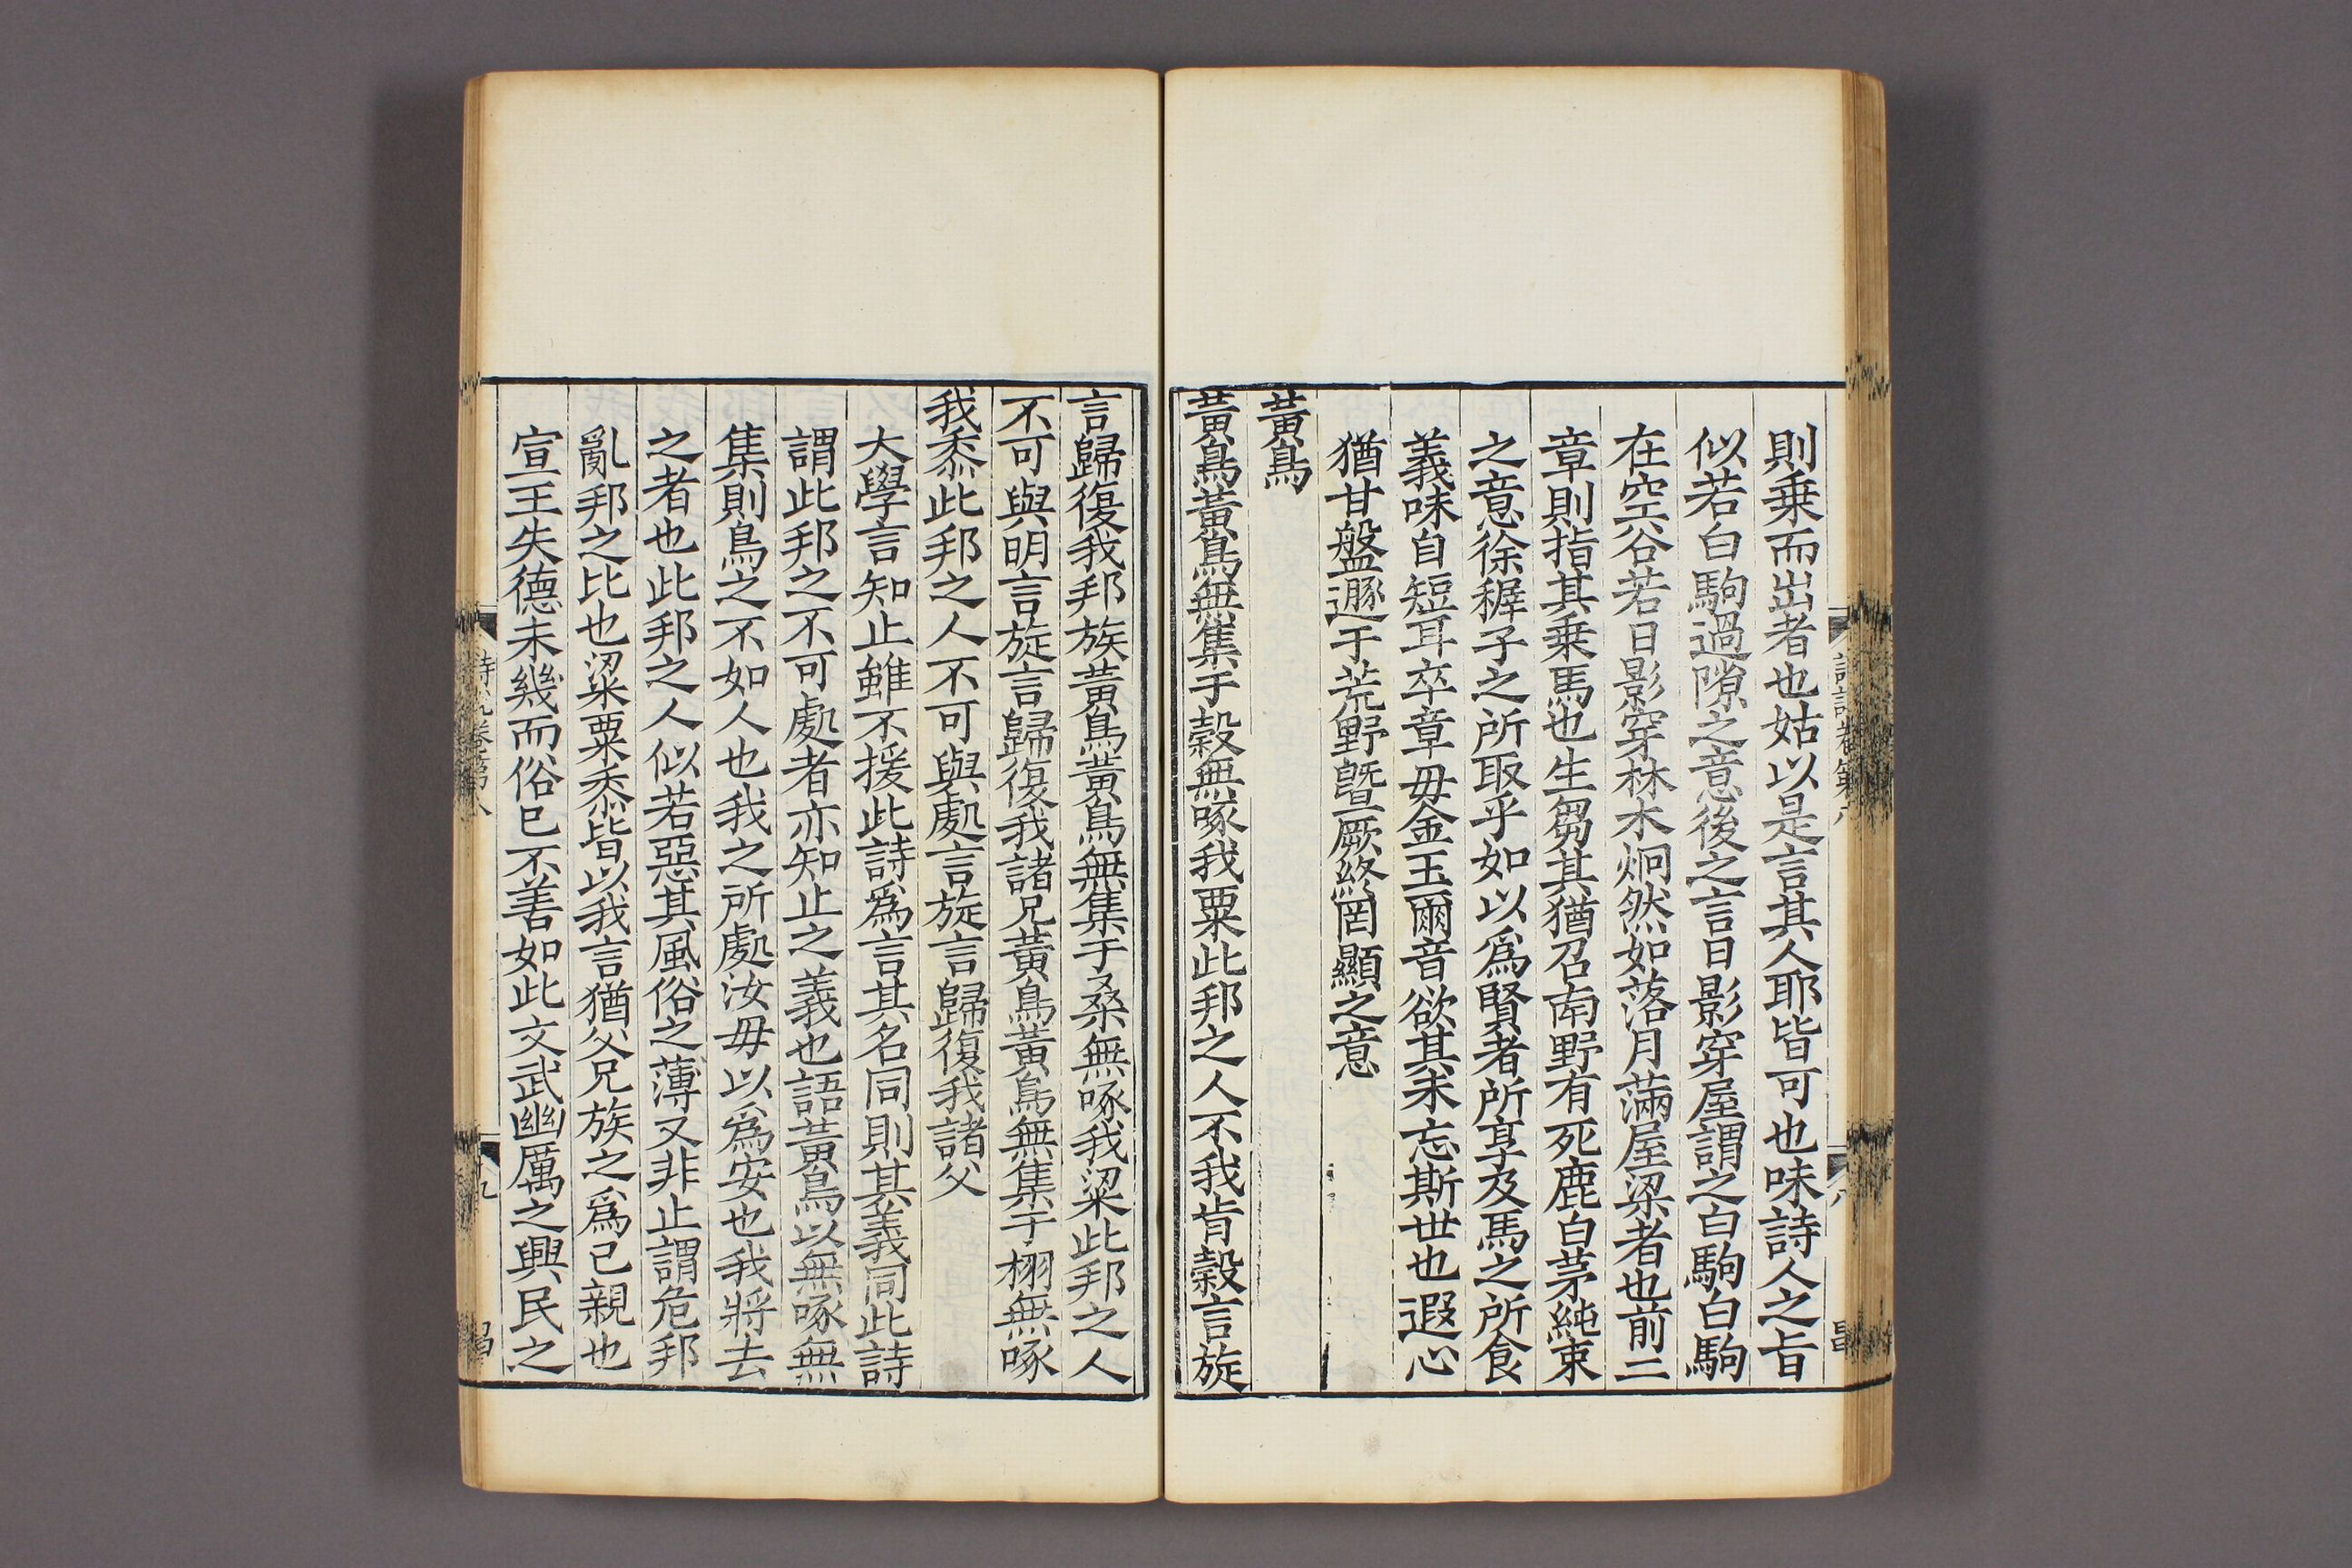 則乗而出者也姑以是言其人耶皆可也味詩人之旨
似若白駒過隙之意後之言日影穿屋謂之白駒白駒
在空谷若日影穿林木炯然如落月滿屋梁者也前二
章則指其乗馬也生芻其猶召南野有死鹿白茅純束
之意徐穉子之所取乎如以爲賢者所享及馬之所食
義味自短耳卒章毋金玉爾音欲其未忘斯世也遐心
猶甘盤遯于荒野曁厥終罔顯之意
黃鳥
黃鳥黃鳥無集于榖無啄我粟此邦之人不我肯榖言旋
言歸復我邦族黃鳥黃鳥無集于桑無啄我粱此邦之人
不可與明言旋言歸復我諸兄黃鳥黃鳥無集于栩無啄
我黍此邦之人不可與處言旋言歸復我諸父
大學言知止雖不援此詩爲言其名同則其義同此詩
謂此邦之不可處者亦知止之義也語黃鳥以無啄無
集則鳥之不如人也我之所處汝毋以爲安也我將去
之者也此邦之人似若惡其風俗之薄又非止謂危邦
亂邦之比也粱粟黍皆以我言猶父兄族之爲已親也
宣王失德未幾而俗已不善如此文武幽厲之興民之
詩說卷第八
十九